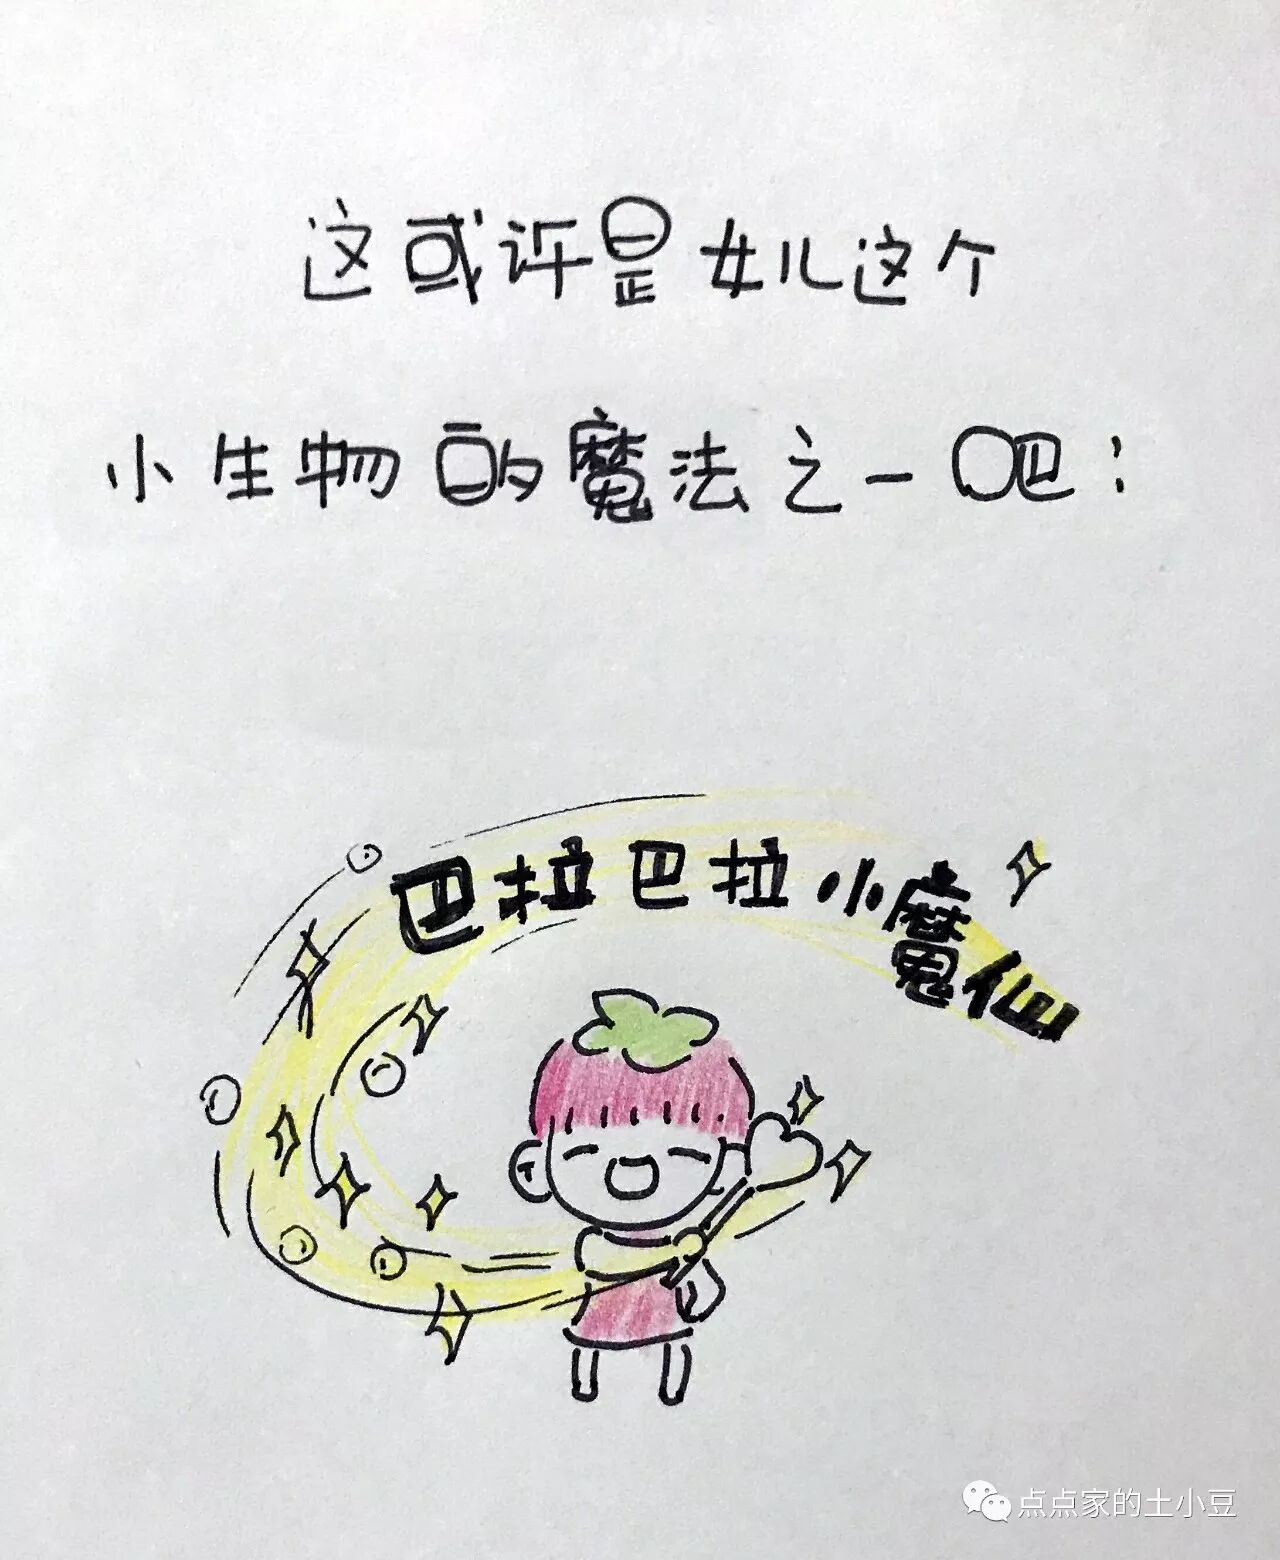 这或许是女儿这个
小生物的魔法之一吧：
巴拉巴拉小魔仙
点点家的土小豆